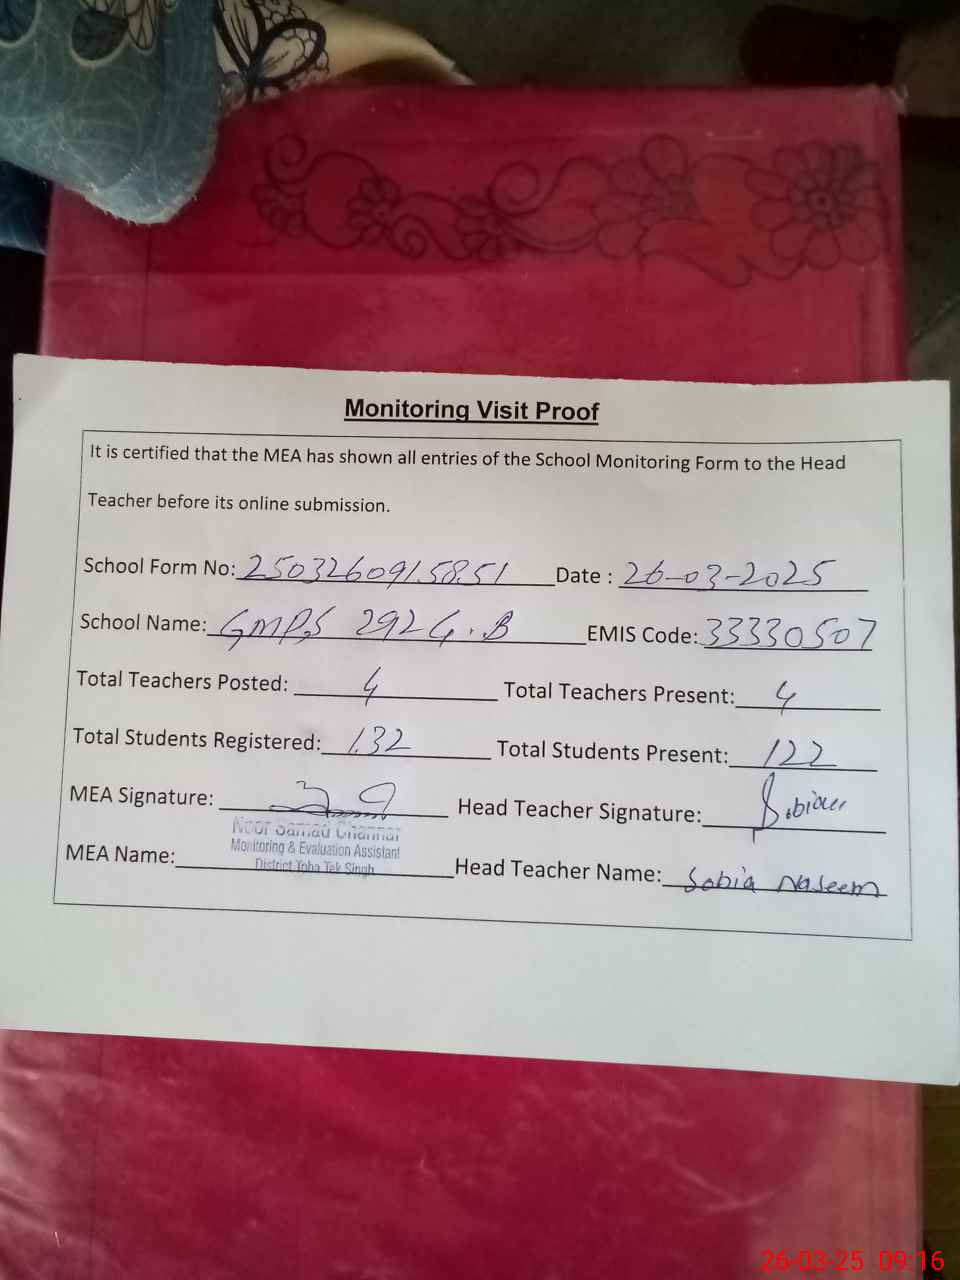 Monitoring Visit Proof
It is certified that the MEA has shown all entries of the School Monitoring Form to the Head
Teacher before its online submission.
School Form No: 250326091.58.51 Date : 26-03-2025
School Name: GMPS 292 G.B EMIS Code: 33330507
Total Teachers Posted: 4 Total Teachers Present: 4
Total Students Registered: 132 Total Students Present: 122
MEA Signature: Head Teacher Signature:
Noor Samad Channar
Monitoring & Evaluation Assistant
District Toba Tek Singh
MEA Name: Head Teacher Name: Sobia Naseem
26-03-25 09:16